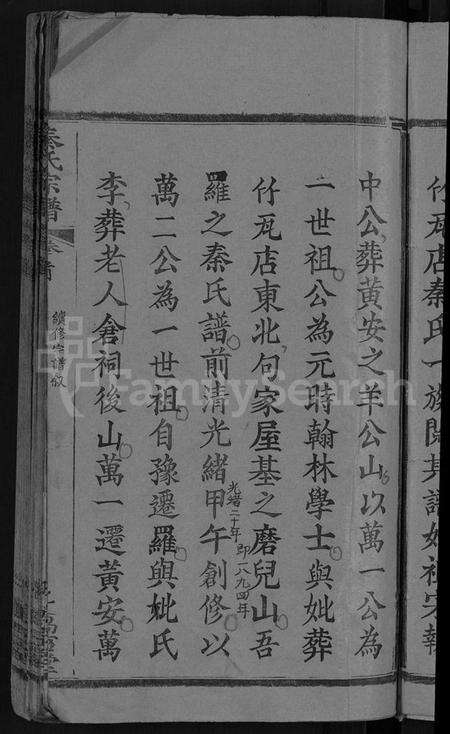 竹瓦店秦氏一族閱其譜始祖宋執
中公葬黃安之羊公山以萬一公為
一世祖公為元時翰林學士與妣葬
竹瓦店東北句家屋基之磨兒山吾
羅之秦氏譜前清光緒甲午創修以
光緒二十年即一八九四年
萬二公為一世祖自豫遷羅與妣氏
李葬老人倉祠後山萬一遷黃安萬
秦氏宗譜
卷首
續修宗譜敘
FamilySearch